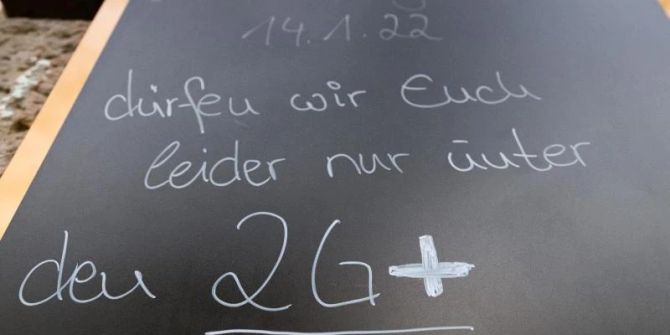 14.1.22
dürfen wir Euch
leider nur unter
den 2G+